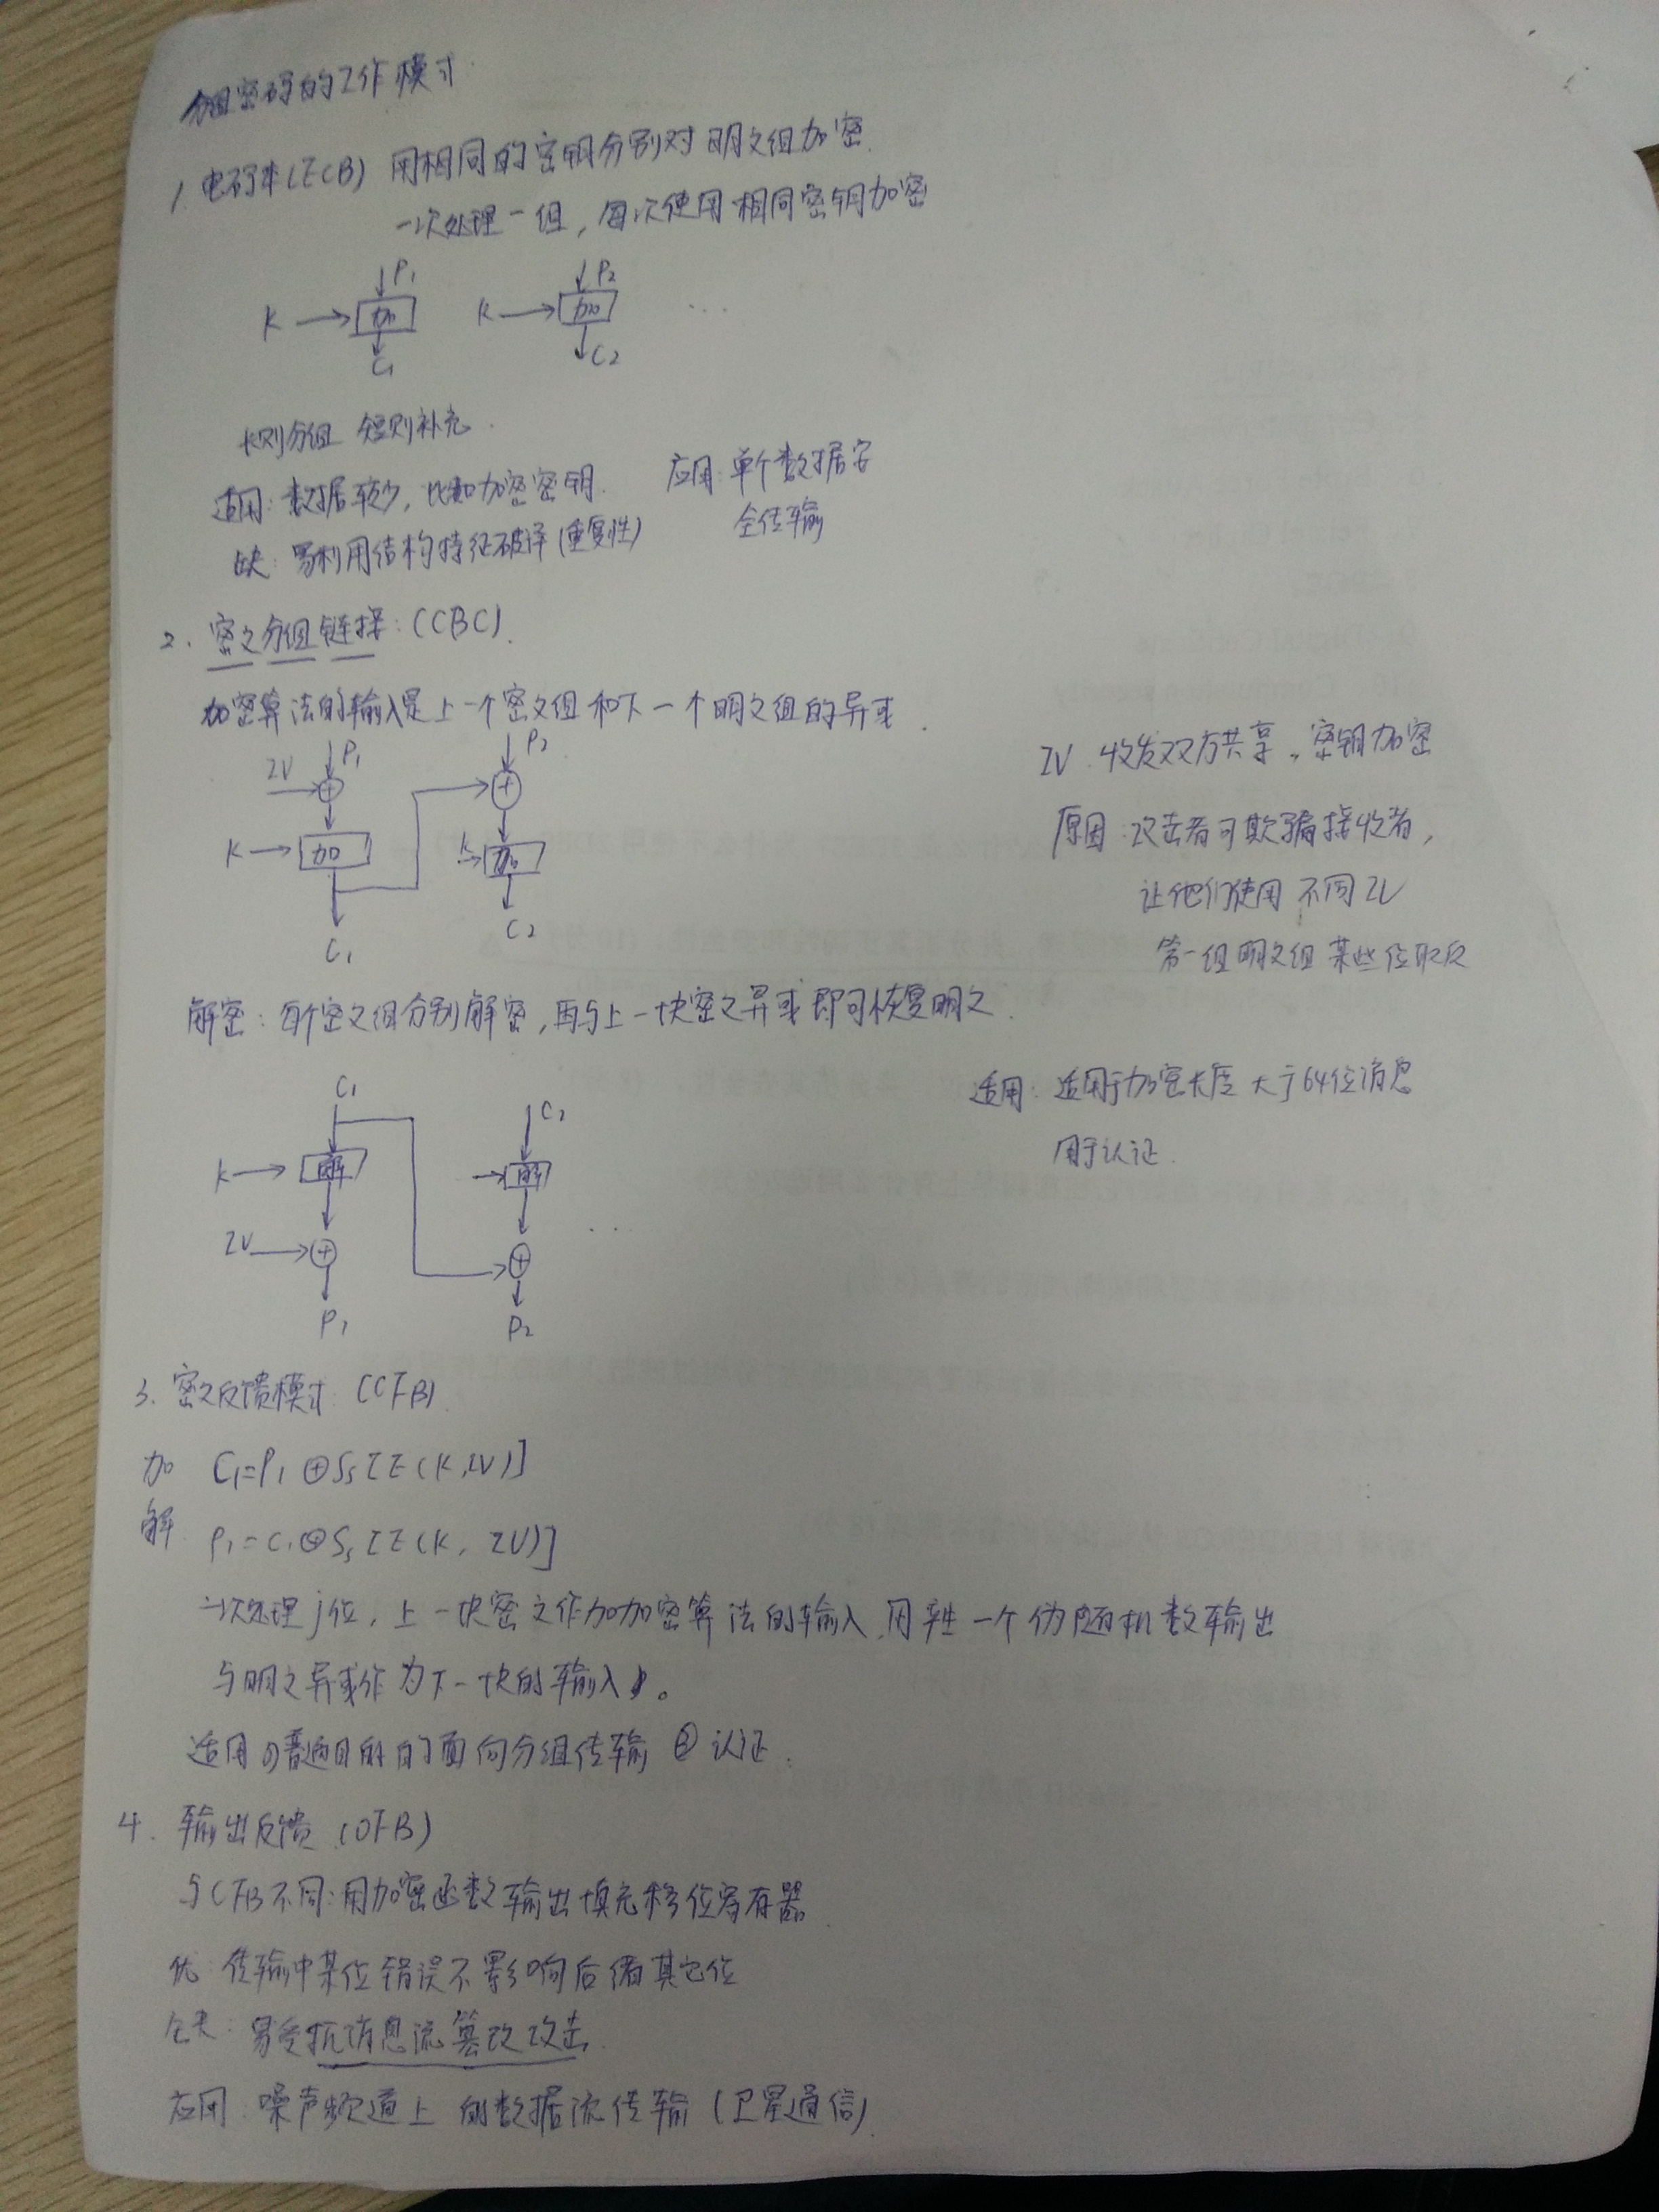 分组密码的工作模式
1. 电码本(ECB) 用相同的密钥分别对明文组加密.
一次处理一组,每次使用相同密钥加密
P1 P2
K 加 K 加 ...
C1 C2
长则分组 短则补充.
适用:数据较少,比如加密密钥. 应用:单个数据安
全传输
缺:易利用结构特征破译(重复性)
2. 密文分组链接:(CBC).
加密算法的输入是上一个密文组和下一个明文组的异或.
IV P1 P2
K 加 K 加
C1 C2
IV 收发双方共享。密钥加密
原因:攻击者可欺骗接收者,
让他们使用不同IV
第一组明文组某些位取反
解密:每个密文组分别解密,再与上一块密文异或即可恢复明文.
C1 C2
K 解 解
IV ...
P1 P2
适用:适用于加密长度大于64位消息
用于认证.
3. 密文反馈模式 (CFB).
加 C1=P1 ⊕ Ss[E(K,IV)]
解 P1=C1⊕Ss[E(K, IV)]
一次处理j位,上一块密文作加加密算法的输入,用产生一个伪随机数输出
与明文异或作为下一块的输入。
适用 ①普遍目的的面向分组传输 ②认证.
4. 输出反馈 (OFB)
与CFB不同:用加密函数输出填充移位寄存器
优:传输中某位错误不影响后续其它位
缺:易受抗消息流篡改攻击.
应用:噪声频道上的数据流传输(卫星通信)